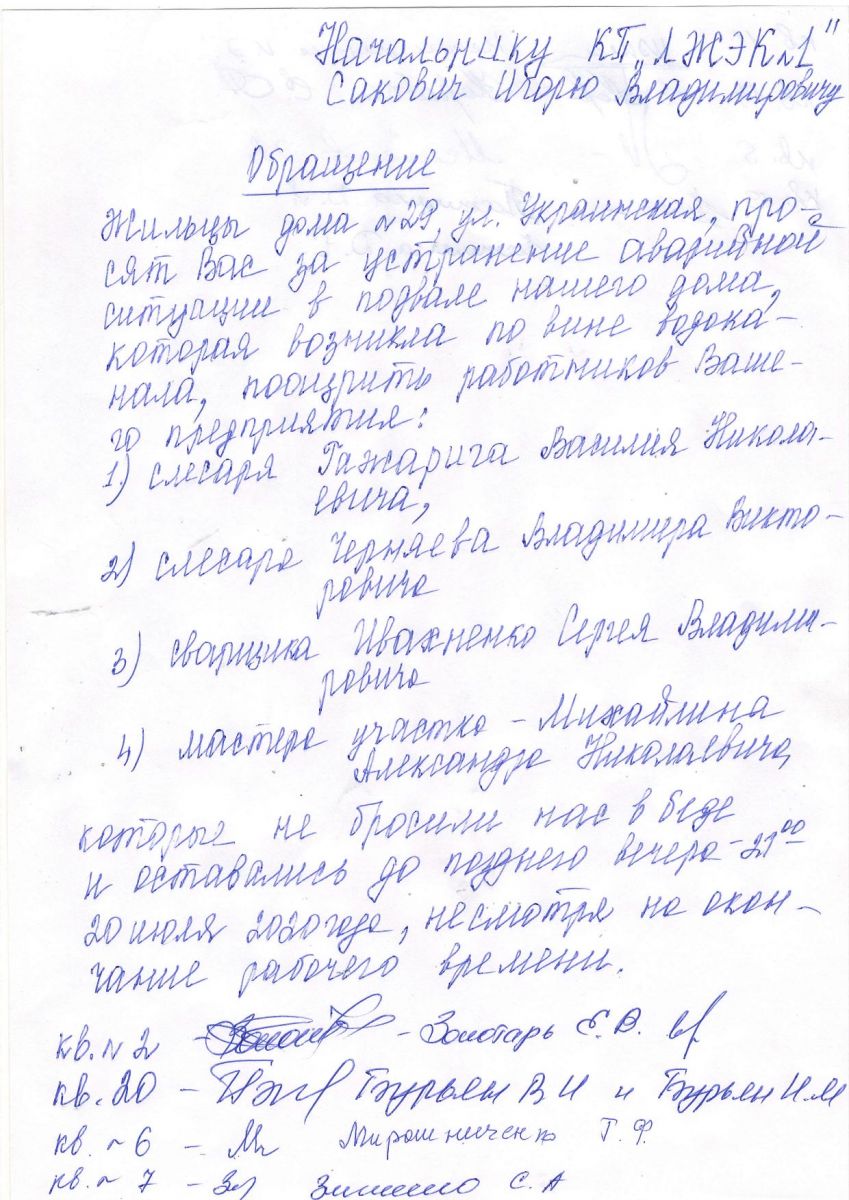 Начальнику КП „ЛЖЭК №1"
Сакович Игорю Владимировичу
Обращение
Жильцы дома №29, ул. Украинская, про-
сят Вас за устранение аварийной
ситуации в подвале нашего дома,
которая возникла по вине водока-
нала, поощрить работников Ваше-
го предприятия:
1.) слесаря Гажарига Василия Никола-
евича,
2) слесаря Черняева Владимира Викто-
ровича
3) сварщика Ивахненко Сергея Владими-
ровича
4) мастера участка – Михайлина
Александра Николаевича,
которые не бросили нас в беде
и оставались до позднего вечера – 21⁰⁰
20 июля 2020 года, несмотря на окон-
чание рабочего времени.
кв. №2 – – Золотарь Е.В.
кв. 20 – Бурьян В И и Бурьян И.М
кв. №6 – Мирошниченко Г.Ф.
кв. №7 – С.А